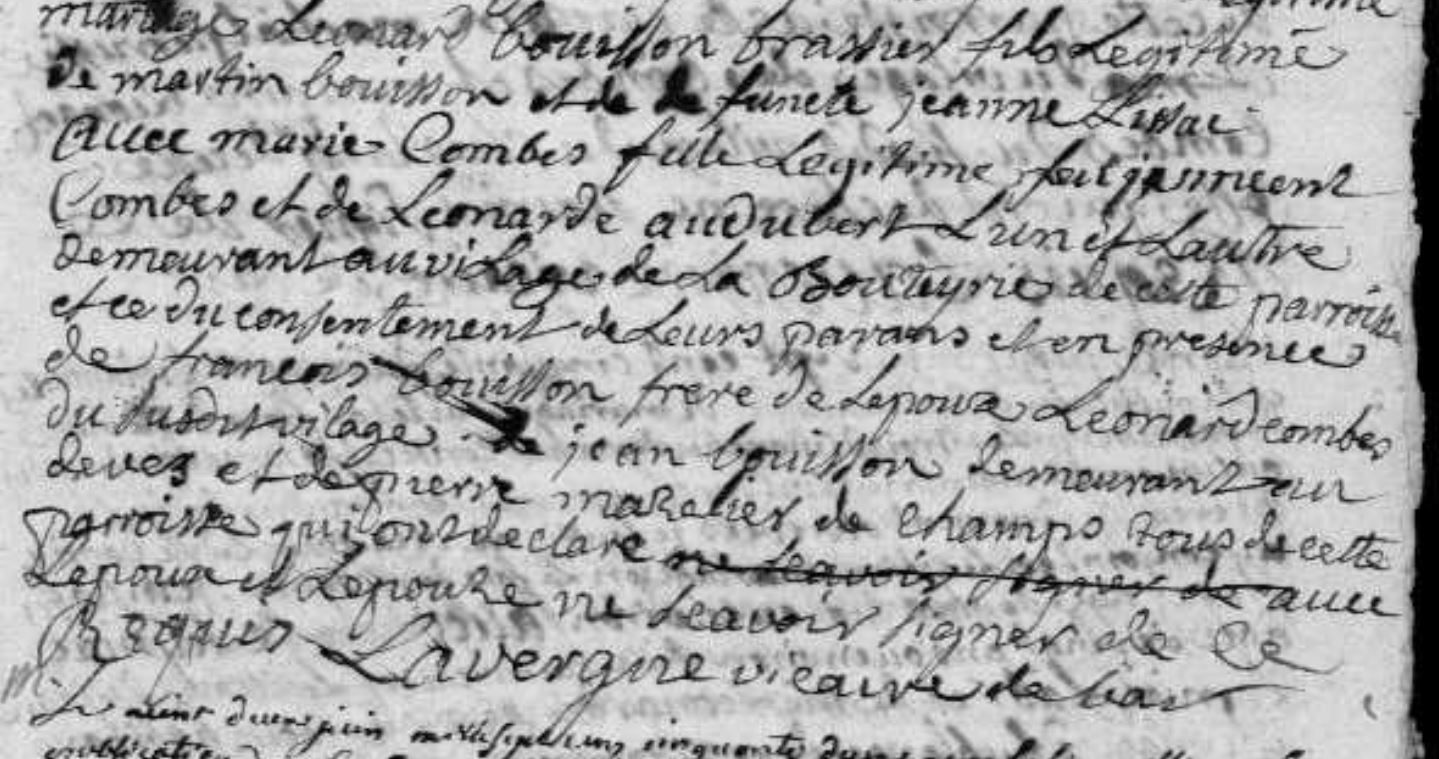 mariage Leonard bouisson brassier fils Legitime
de martin bouisson et de de functe jeanne Lissac
Avec marie Combes fille Legitime feit
Combes et de Leonarde audubert Lun et Lautre
demeurant au vilage de La Bouteyrie de cette parroisse
et ce du consentement de Leurs parans et en presence
de francois bouisson frere de Lepoux Leonard combes
du susdit vilage jean bouisson demeurant au
devez et de pierre mazelier de champs tous de cette
parroisse qui ont declare ne scavoir signer de avec
Lepoux et Lepouze ne scavoir signer de ce
Requis Lavergne vicaire de bar
Le juin cinquante
publication